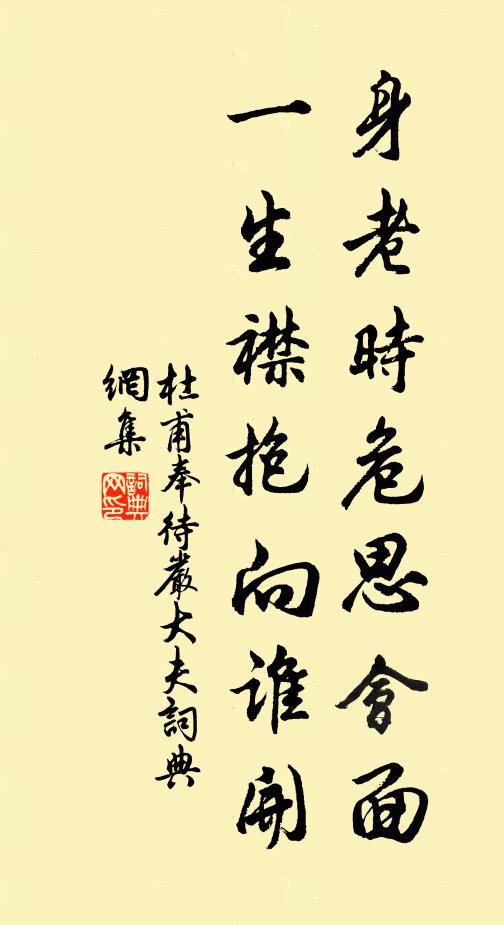 身老時危思會面
一生襟抱向誰開
杜甫奉待嚴大夫詞典
網集
詞典
网印